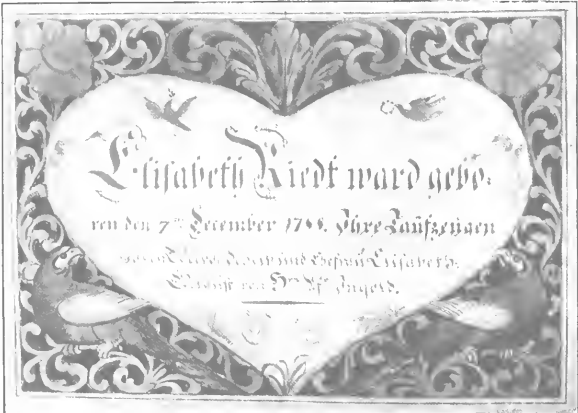 Elisabeth Riedt ward gebo=
ren den 7ten December 1788. Ihre Taufzeugen
waren und Ehefrau Elisabeth.
Getauft von Hrn Pfr Ingold.